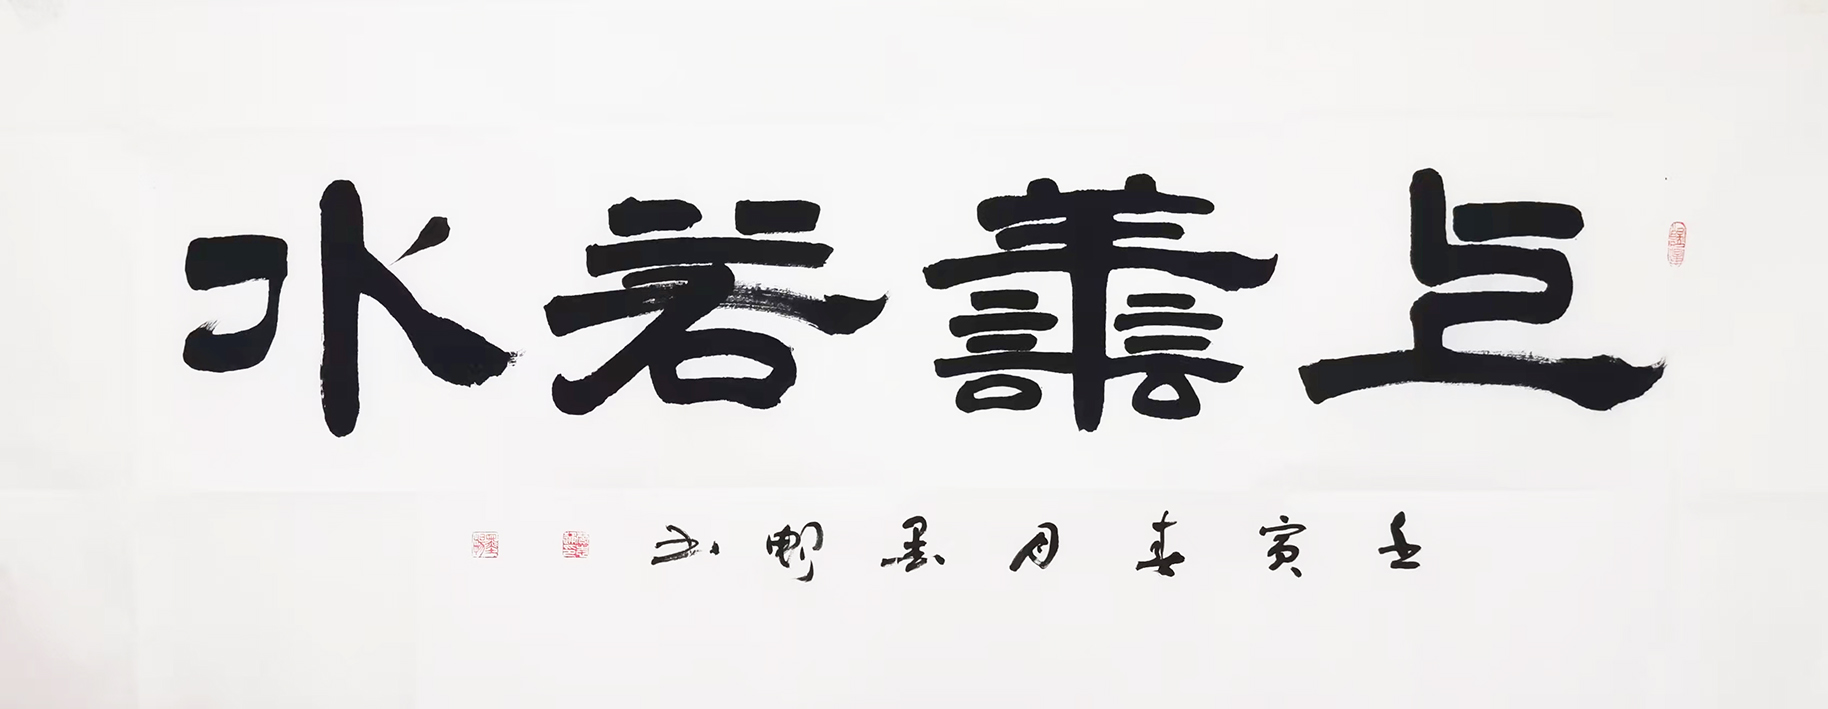 上善若水
壬寅春月墨邨书